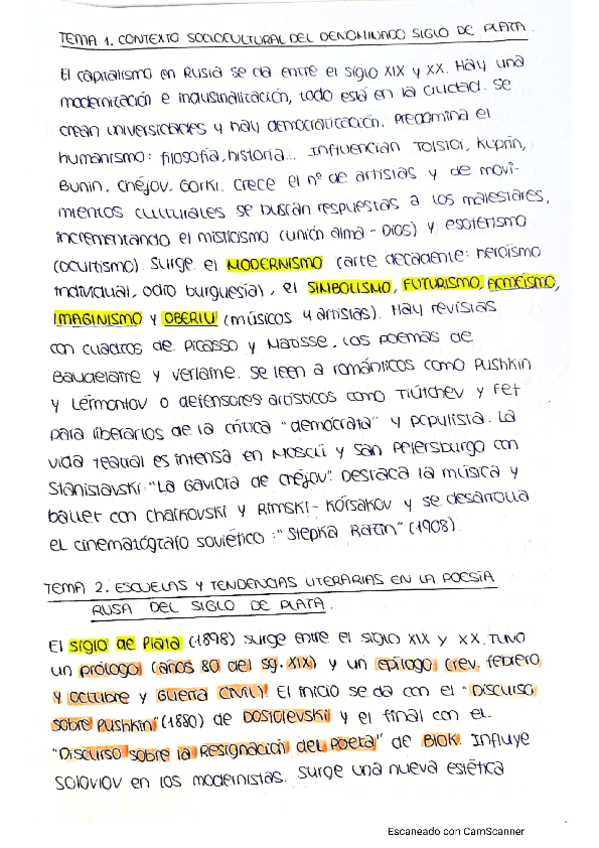 TEMA 1. CONTEXTO SOCIOCULTURAL DEL DENOMINADO SIGLO DE PLATA.
El capitalismo en Rusia se da entre el siglo XIX y XX. Hay una
modernización e industrialización, todo está en la ciudad. Se
crean universidades y hay democratización. Predomina el
humanismo: filosofía, historia... Influencian Tolstoi, Kuprín,
Bunin, Chéjov, Gorki. Crece el nº de artistas y de movi-
mientos culturales se buscan respuestas a los malestares,
incrementando el misticismo (unión alma - Dios) y esoterismo
(ocultismo). Surge el MODERNISMO (arte decadente: heroísmo
individual, odio burguesía), el SIMBOLISMO, FUTURISMO, ACMEÍSMO,
IMAGINISMO y OBERIU (músicos y artistas). Hay revistas
con cuadros de Picasso y Matisse, los poemas de
Baudelaire y Verlaine. Se leen a románticos como Pushkin
y Lérmontov o defensores artísticos como Tiútchev y Fet
para liberarlos de la crítica "demócrata" y populista. La
vida teatral es intensa en Moscú y San Petersburgo con
Stanislavski: "La Gaviota de Chéjov". Destaca la música y
ballet con Chaikovski y Rimski-Kórsakov y se desarrolla
el cinematógrafo soviético: "Stepka Razin" (1908).
TEMA 2. ESCUELAS Y TENDENCIAS LITERARIAS EN LA POESÍA
RUSA DEL SIGLO DE PLATA.
El siglo de Plata (1898) surge entre el siglo XIX y XX. Tuvo
un prólogo (años 80 del sg. XIX) y un epílogo (rev. febrero
y octubre y Guerra Civil). El inicio se da con el "Discurso
sobre Pushkin" (1880) de Dostoievski y el final con el
"Discurso sobre la Resignación del Poeta" de Blok. Influye
Soloviov en los modernistas. Surge una nueva estética
Escaneado con CamScanner